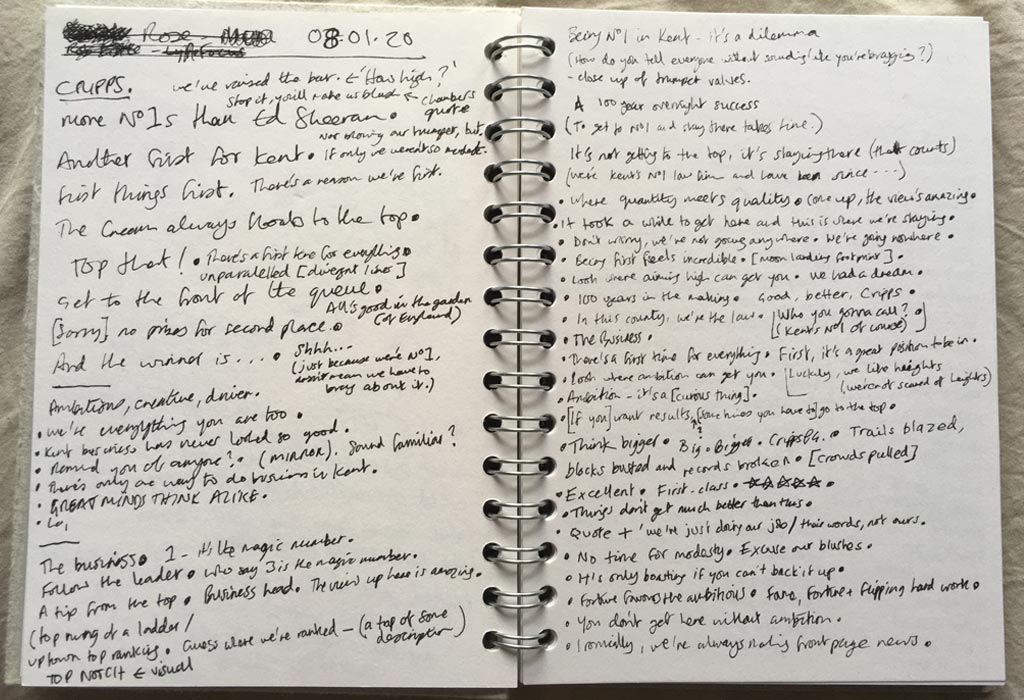 Rose 08.01.20
CRIPPS. we've raised the bar. ← 'How high?'
stop it, you'll make us blush ← chambers quote
more Nº1s than Ed Sheeran.
Not blowing our trumpet, but..
Another first for Kent. If only we weren't so modest.
First things first. There's a reason we're first.
The cream always floats to the top.
Top that! • There's a first time for everything.
unparalleled [divergent lines]
Get to the front of the queue.
All's good in the garden (of England)
[Sorry] no prizes for second place.
And the winner is.... • Shhh...
(just because we're Nº1, doesn't mean we have to brag about it.)
Ambitious, creative, driven.
• we're everything you are too.
• Kent business has never looked so good.
• Remind you of anyone? • (mirror). Sound familiar?
• There's only one way to do business in Kent.
• GREAT MINDS THINK ALIKE.
The business. 1 - it's the magic number.
Follow the leader. Who say 3 is the magic number.
A tip from the top. Business head. The view up here is amazing.
(top rung of a ladder/
uptown top ranking. Guess where we're ranked – (a top of some description)
TOP NOTCH ← visual
Being Nº1 in Kent – it's a dilemma
(How do you tell everyone without sounding like you're bragging?)
- close up of trumpet valves.
A 100 year overnight success
(To get to Nº1 and stay there takes time.)
It's not getting to the top, it's staying there (that counts)
(we're Kent's Nº1 law firm and have been since....)
• Where quantity meets quality. Come up, the view's amazing.
• It took a while to get here and this is where we're staying.
• Don't worry, we're not going anywhere. We're going nowhere.
• Being first feels incredible. [moon landing footprint]
• Look where aiming high can get you. We had a dream.
• 100 years in the making. Good, better, Cripps.
• In this county, we're the law. [Who you gonna call? (Kent's Nº1 of course)]
• The Business.
• There's a first time for everything. First, it's a great position to be in.
• Look where ambition can get you. [Luckily, we like heights (we're not scared of heights)
• Ambition – it's a [curious thing].
• [If you] want results, [sometimes you have to] go to the top.
• Think bigger. Big. Bigger. Trails blazed,
blocks busted and records broken. [crowds pulled]
• Excellent. First-class. ☆☆☆☆☆
• Things don't get much better than this.
• Quote + 'we're just doing our job / their words, not ours.
• No time for modesty. Excuse our blushes.
• It's only boasting if you can't back it up.
• Fortune favours the ambitious. Fame, Fortune + flipping hard work.
• You don't get here without ambition.
• Ironically, we're always making front page news.